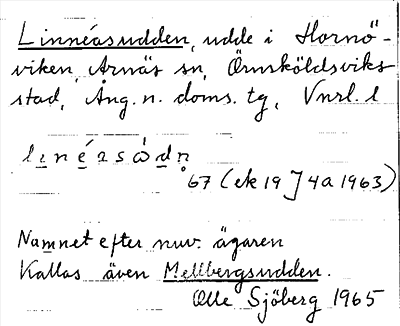 Linnéasudden, udde i Hornö-
viken, Arnäs sn, Örnsköldsviks
stad, Ång. n. doms. tg, Vnrl. l
lınéasòdn̥
67 (ek 19 J 4a 1963)
Namnet efter nuv. ägaren
Kallas även Mellbergsudden.
Olle Sjöberg 1965